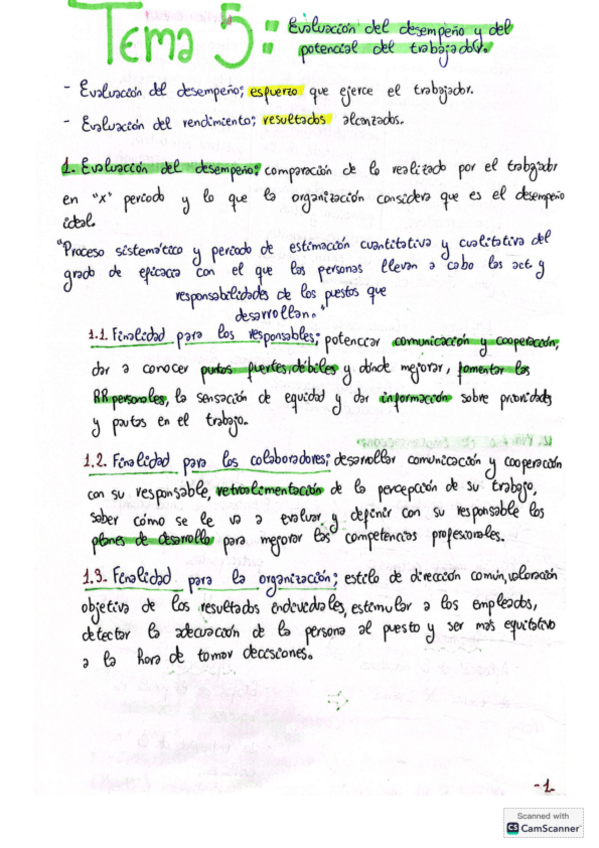 Tema 5: Evaluación del desempeño y del
potencial del trabajador.
- Evaluación del desempeño; esfuerzo que ejerce el trabajador.
- Evaluación del rendimiento; resultados alcanzados.
1. Evaluación del desempeño; comparación de lo realizado por el trabajador
en "x" periodo y lo que la organización considera que es el desempeño
ideal.
"Proceso sistemático y periodo de estimación cuantitativa y cualitativa del
grado de eficacia con el que las personas llevan a cabo las act. y
responsabilidades de los puestos que
desarrollan."
1.1. Finalidad para los responsables; potenciar comunicación y cooperación,
dar a conocer puntos fuertes, débiles y dónde mejorar, fomentar las
RR personales, la sensación de equidad y dar información sobre prioridades
y pautas en el trabajo.
1.2. Finalidad para los colaboradores; desarrollar comunicación y cooperación
con su responsable, retroalimentación de la percepción de su trabajo,
saber cómo se le va a evaluar y definir con su responsable los
planes de desarrollo para mejorar las competencias profesionales.
1.3. Finalidad para la organización; estilo de dirección común, valoración
objetiva de los resultados individuales, estimular a los empleados,
detectar la adecuación de la persona al puesto y ser más equitativo
a la hora de tomar decisiones.
-1-
Scanned with
CS CamScanner